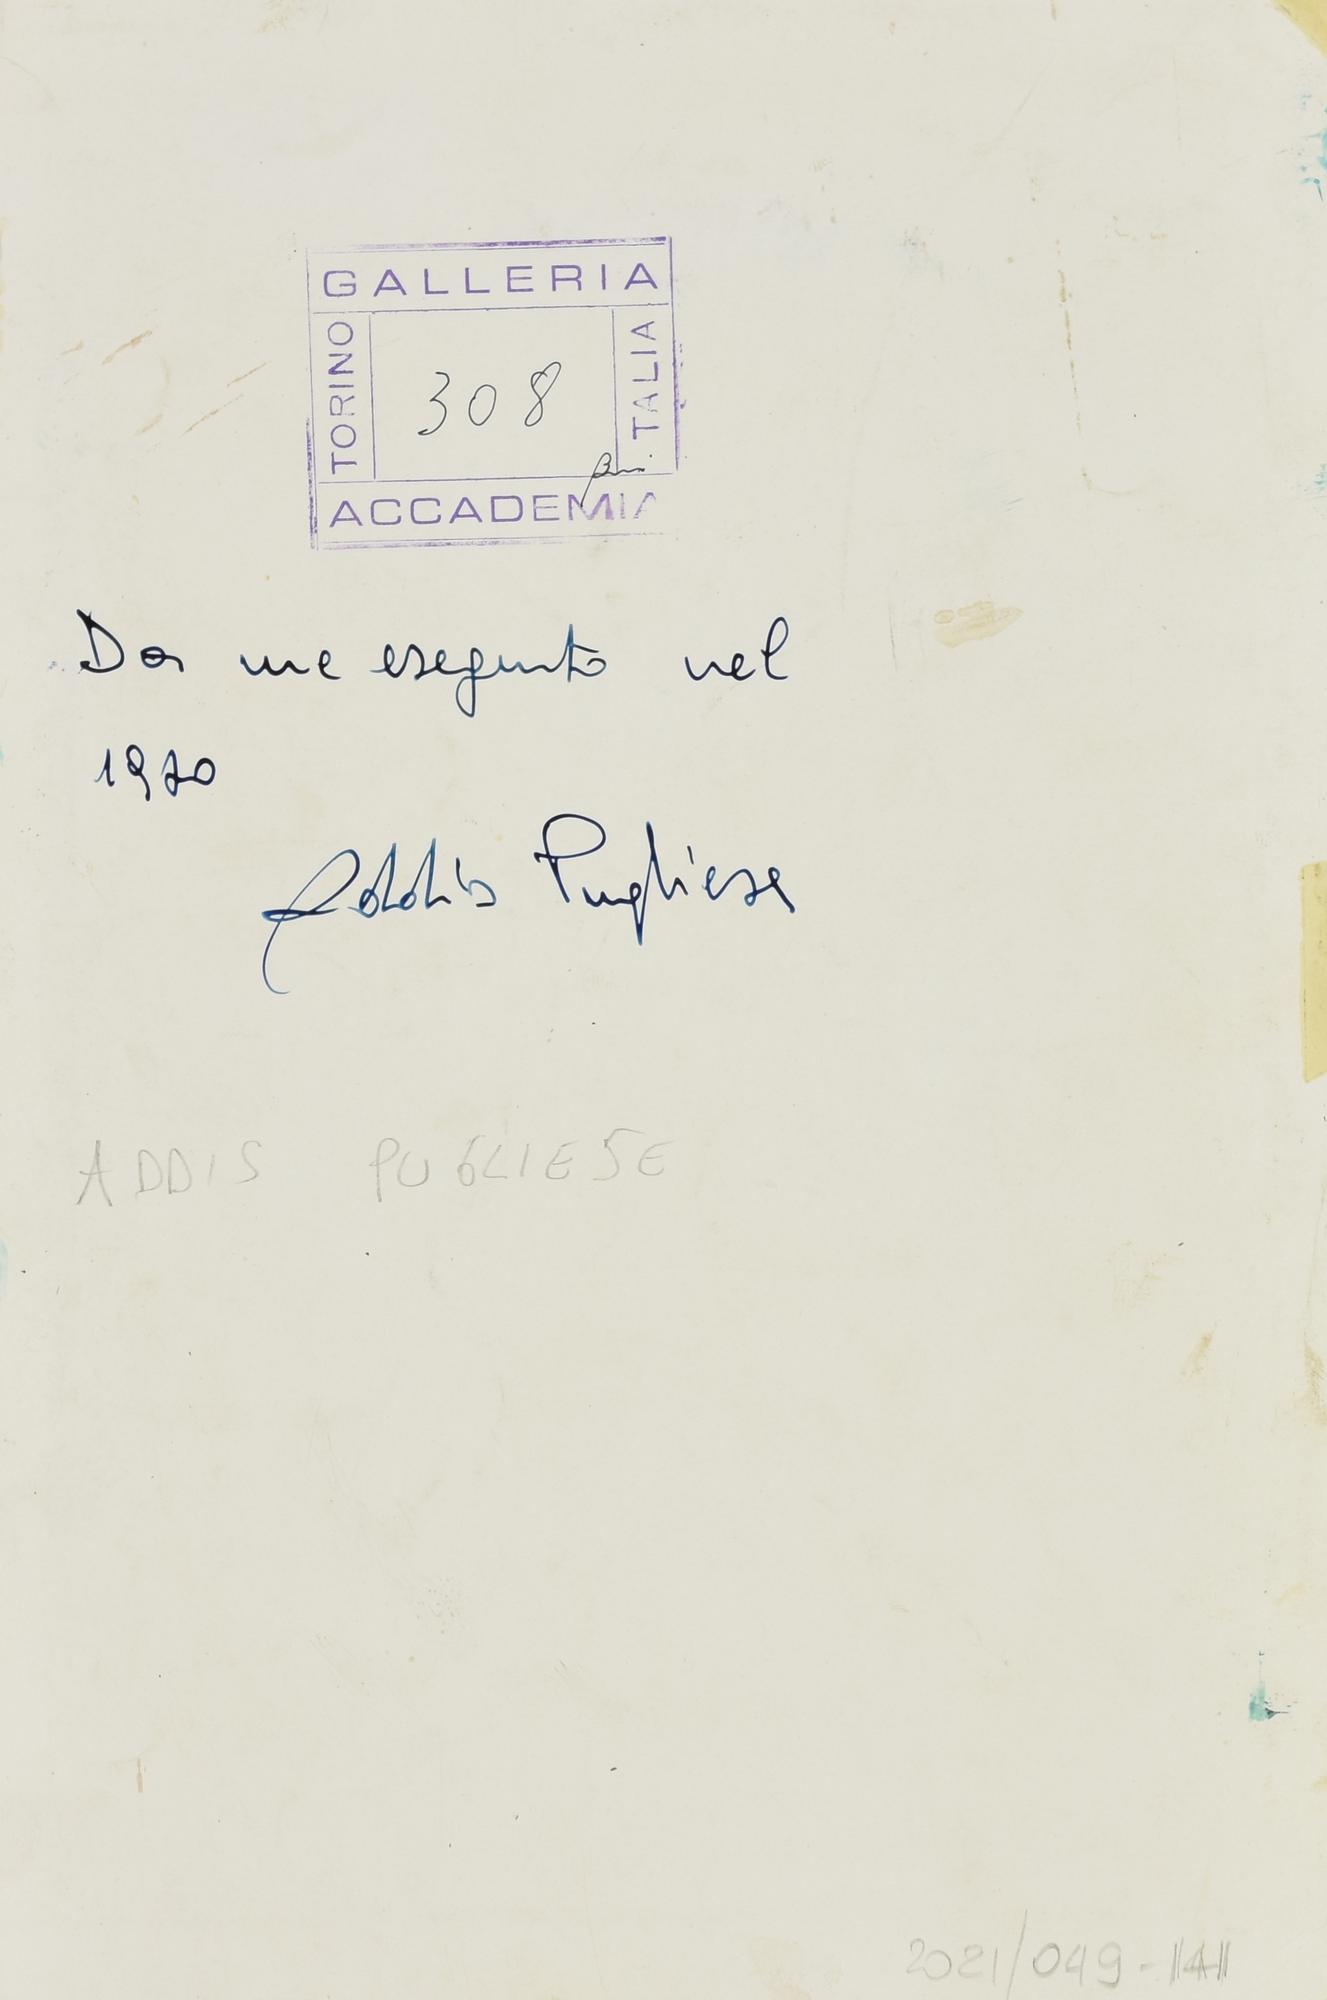 GALLERIA
TORINO
308
ITALIA
ACCADEMIA
Da me eseguito nel
1970
Addis Pugliese
ADDIS PUGLIESE
2021/049-